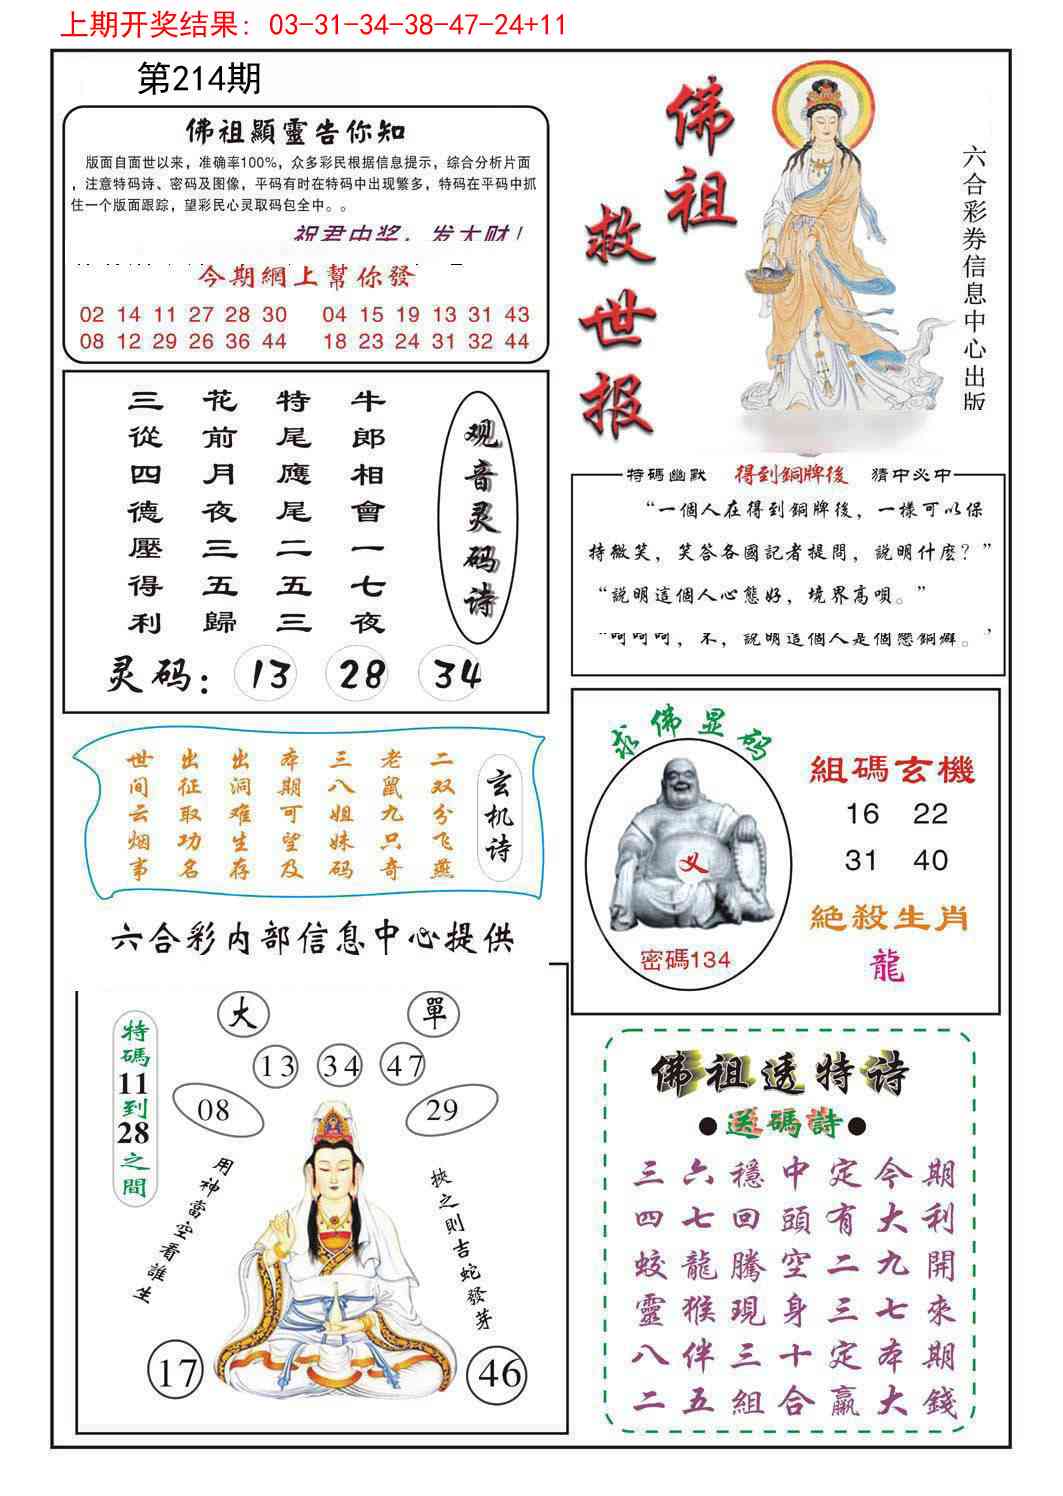 上期开奖结果：03-31-34-38-47-24+11
第214期
佛祖顯靈告你知
版面自面世以来，准确率100%，众多彩民根据信息提示，综合分析片面
，注意特码诗、密码及图像，平码有时在特码中出现繁多，特码在平码中抓
住一个版面跟踪，望彩民心灵取码包全中。。
祝君中奖，发大财！
今期網上幫你發
02 14 11 27 28 30 04 15 19 13 31 43
08 12 29 26 36 44 18 23 24 31 32 44
佛祖
救世报
六合彩券信息中心出版
观音灵码诗
牛郎相會一七夜
特尾應尾二五三
花前月夜三五歸
三從四德壓得利
灵码：13 28 34
特碼幽默 得到銅牌後 猜中必中
“一個人在得到銅牌後，一樣可以保
持微笑，笑答各國記者提問，説明什麽？”
“説明這個人心態好，境界高唄。”
“呵呵呵，不，説明這個人是個戀銅癖。”
玄机诗
二双分飞燕
老鼠九只奇
三八姐妹码
本期可望及
出洞难生存
出征取功名
世间云烟事
求佛显码
义
密碼134
組碼玄機
16 22
31 40
絶殺生肖
龍
六合彩内部信息中心提供
特碼11到28之間
大 單
13 34 47
08 29
用神當空看誰生
挾之則吉蛇發芽
17 46
佛祖透特诗
●送碼詩●
三六穩中定今期
四七回頭有大利
蛟龍騰空二九開
靈猴現身三七來
八伴三十定本期
二五組合贏大錢